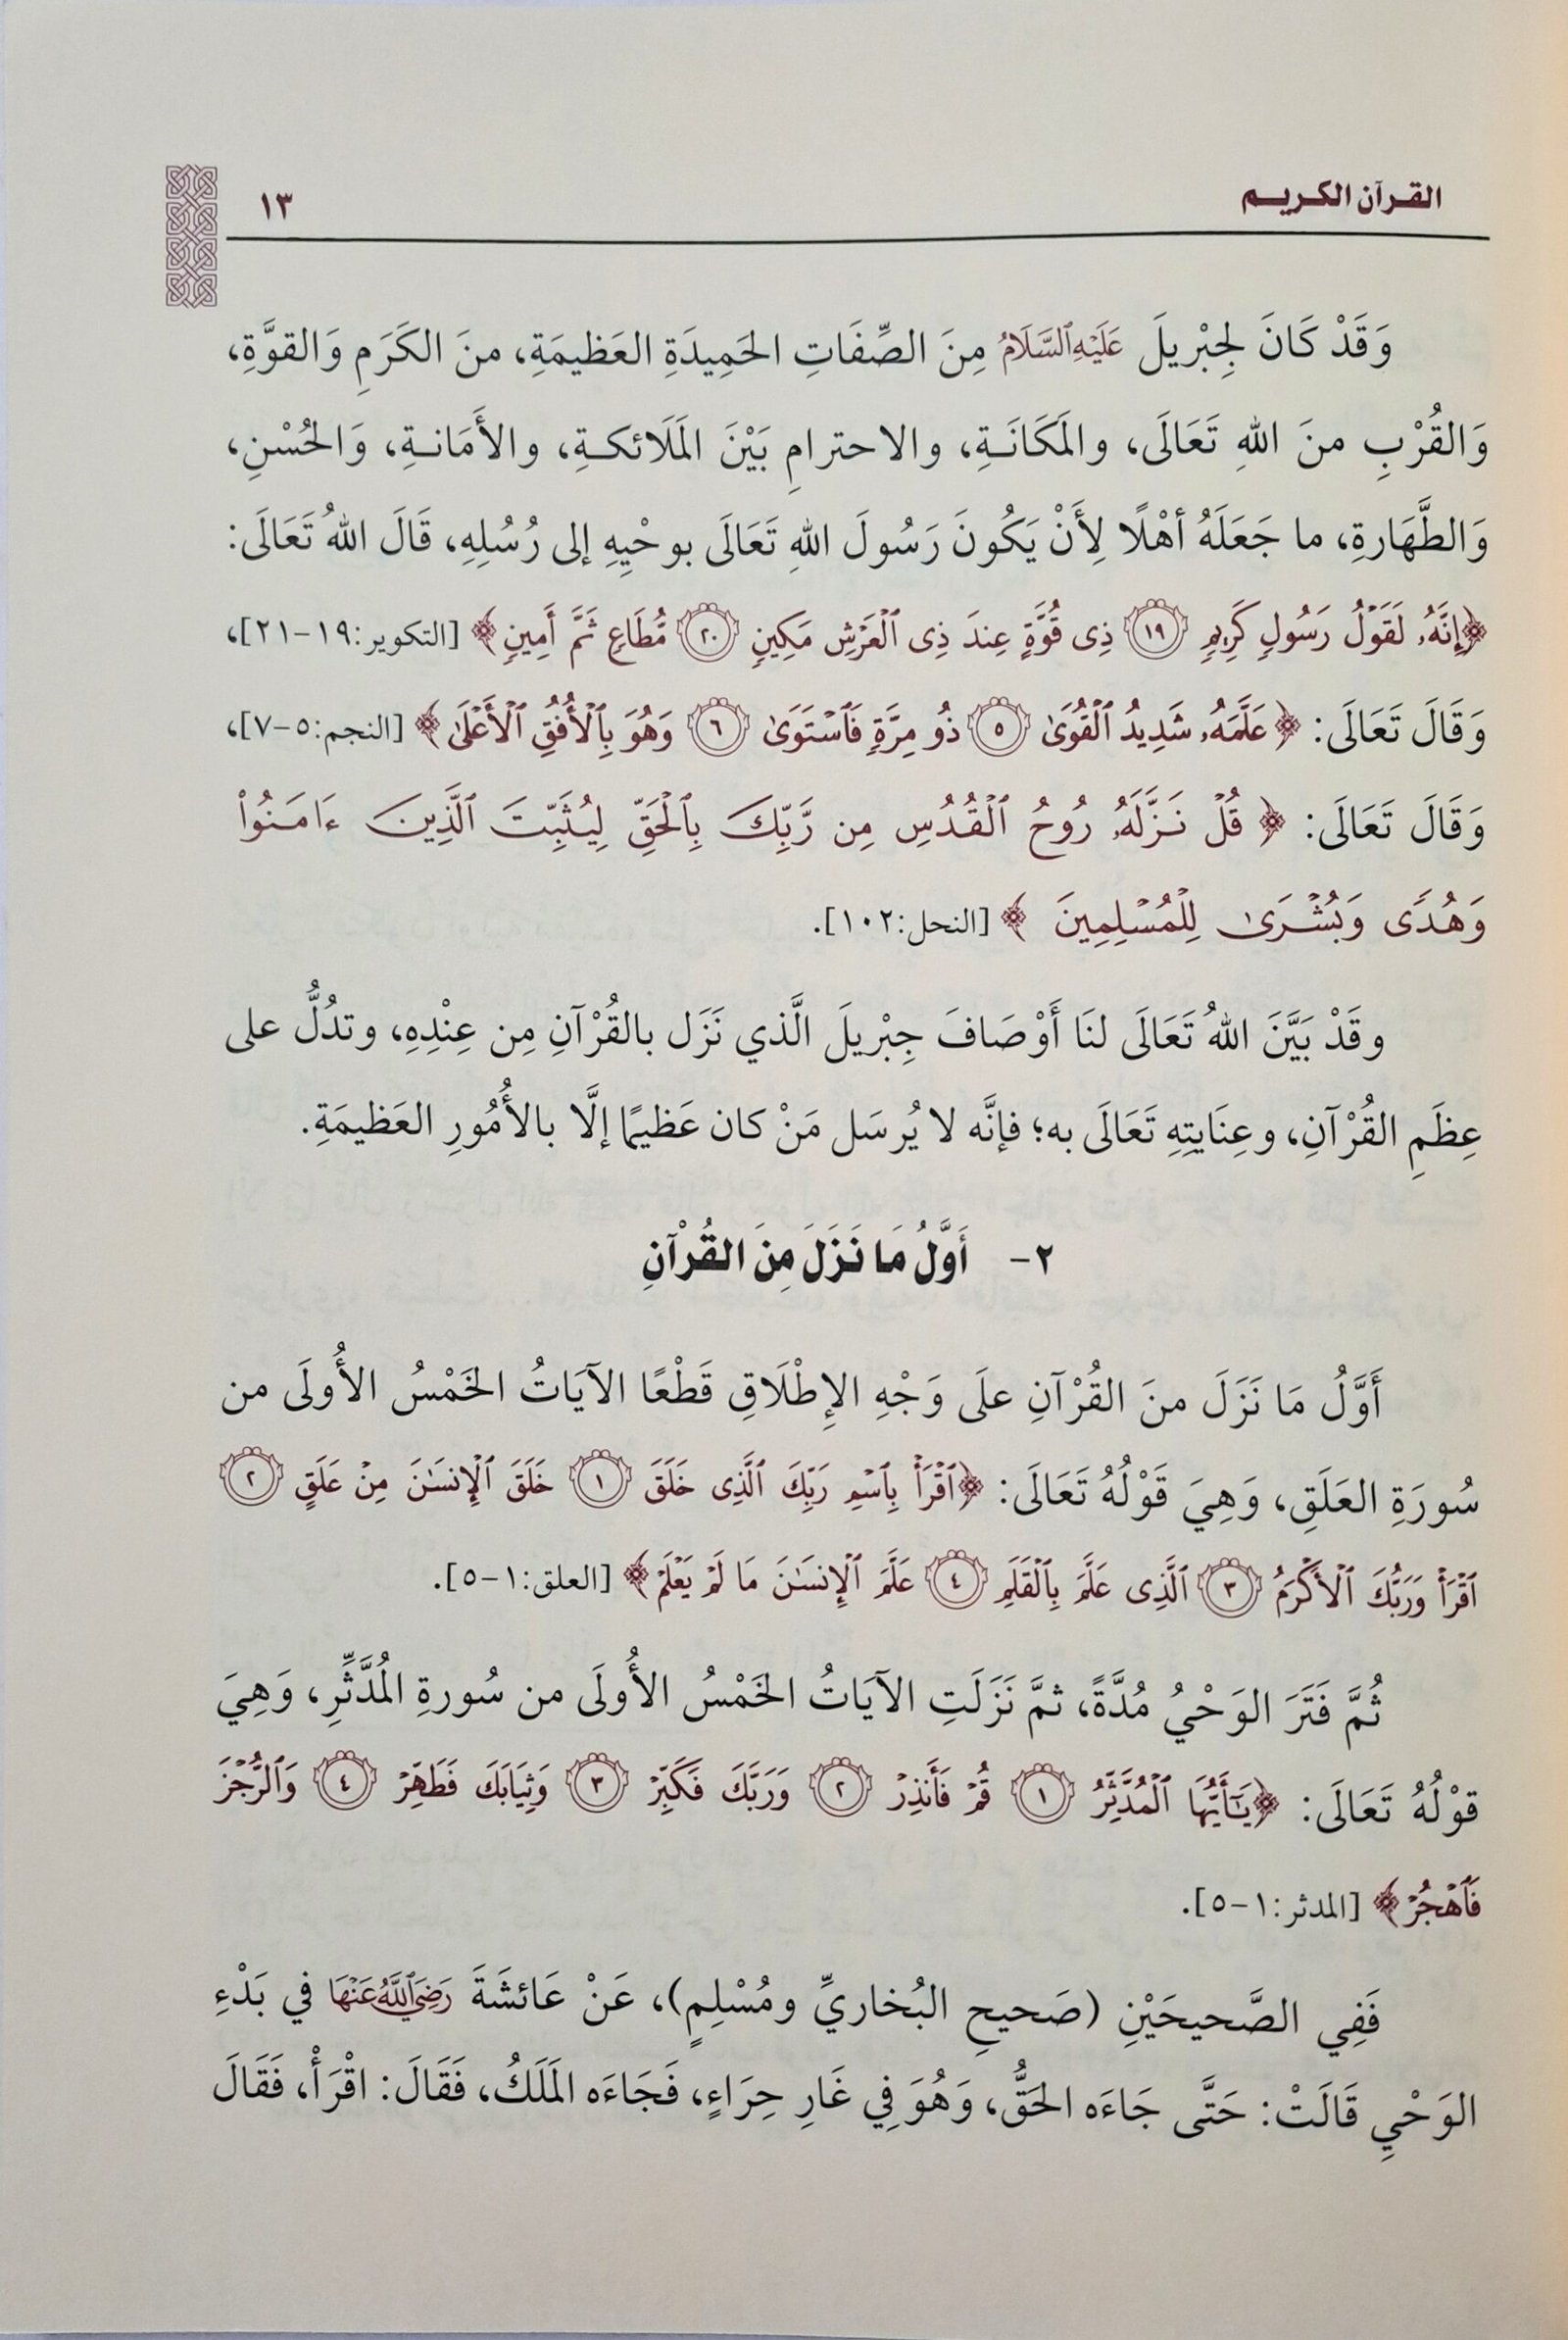 القرآن الكريم
١٣
وَقَدْ كَانَ لِجِبْرِيلَ عَلَيْهِ ٱلسَّلَامُ مِنَ الصِّفَاتِ الحَمِيدَةِ العَظِيمَةِ، منَ الكَرَمِ وَالقوَّةِ،
وَالقُرْبِ منَ اللهِ تَعَالَى، والمَكَانَةِ، والاحترامِ بَيْنَ المَلَائكةِ، والأَمَانةِ، وَالحُسْنِ،
وَالطَّهَارةِ، ما جَعَلَهُ أهْلًا لِأَنْ يَكُونَ رَسُولَ اللهِ تَعَالَى بوحْيِهِ إلى رُسُلِهِ، قَالَ اللهُ تَعَالَى:
﴿إِنَّهُۥ لَقَوْلُ رَسُولٍ كَرِيمٍ ١٩ ذِى قُوَّةٍ عِندَ ذِى ٱلْعَرْشِ مَكِينٍ ٢٠ مُّطَاعٍ ثَمَّ أَمِينٍ﴾ [التكوير:١٩-٢١]،
وَقَالَ تَعَالَى: ﴿عَلَّمَهُۥ شَدِيدُ ٱلْقُوَىٰ ٥ ذُو مِرَّةٍ فَٱسْتَوَىٰ ٦ وَهُوَ بِٱلْأُفُقِ ٱلْأَعْلَىٰ﴾ [النجم:٥-٧]،
وَقَالَ تَعَالَى: ﴿قُلْ نَزَّلَهُۥ رُوحُ ٱلْقُدُسِ مِن رَّبِّكَ بِٱلْحَقِّ لِيُثَبِّتَ ٱلَّذِينَ ءَامَنُوا۟
وَهُدًى وَبُشْرَىٰ لِلْمُسْلِمِينَ﴾ [النحل:١٠٢].
وقَدْ بَيَّنَ اللهُ تَعَالَى لنَا أَوْصَافَ جِبْريلَ الَّذي نَزَل بالقُرْآنِ مِن عِنْدِهِ، وتدُلُّ على
عِظَمِ القُرْآنِ، وعِنَايتِهِ تَعَالَى به؛ فإنَّه لا يُرسَل مَنْ كان عَظيمًا إلَّا بالأُمُورِ العَظيمَةِ.
٢- أَوَّلُ مَا نَزَلَ مِنَ القُرْآنِ
أَوَّلُ مَا نَزَلَ منَ القُرْآنِ علَى وَجْهِ الإِطْلَاقِ قَطْعًا الآيَاتُ الخَمْسُ الأُولَى من
سُورَةِ العَلَقِ، وَهِيَ قَوْلُهُ تَعَالَى: ﴿ٱقْرَأْ بِٱسْمِ رَبِّكَ ٱلَّذِى خَلَقَ ١ خَلَقَ ٱلْإِنسَٰنَ مِنْ عَلَقٍ ٢
ٱقْرَأْ وَرَبُّكَ ٱلْأَكْرَمُ ٣ ٱلَّذِى عَلَّمَ بِٱلْقَلَمِ ٤ عَلَّمَ ٱلْإِنسَٰنَ مَا لَمْ يَعْلَمْ﴾ [العلق:١-٥].
ثُمَّ فَتَرَ الوَحْيُ مُدَّةً، ثمَّ نَزَلَتِ الآيَاتُ الخَمْسُ الأُولَى من سُورةِ المُدَّثِّرِ، وَهِيَ
قوْلُهُ تَعَالَى: ﴿يَٰٓأَيُّهَا ٱلْمُدَّثِّرُ ١ قُمْ فَأَنذِرْ ٢ وَرَبَّكَ فَكَبِّرْ ٣ وَثِيَابَكَ فَطَهِّرْ ٤ وَٱلرُّجْزَ
فَٱهْجُرْ﴾ [المدثر:١-٥].
فَفِي الصَّحيحَيْنِ (صَحيحِ البُخاريِّ ومُسْلِمٍ)، عَنْ عَائشَةَ رَضِيَ ٱللَّهُ عَنْهَا في بَدْءِ
الوَحْيِ قَالَتْ: حَتَّى جَاءَه الحَقُّ، وَهُوَ فِي غَارِ حِرَاءٍ، فَجَاءَه المَلَكُ، فَقَالَ: اقْرَأْ، فَقَالَ